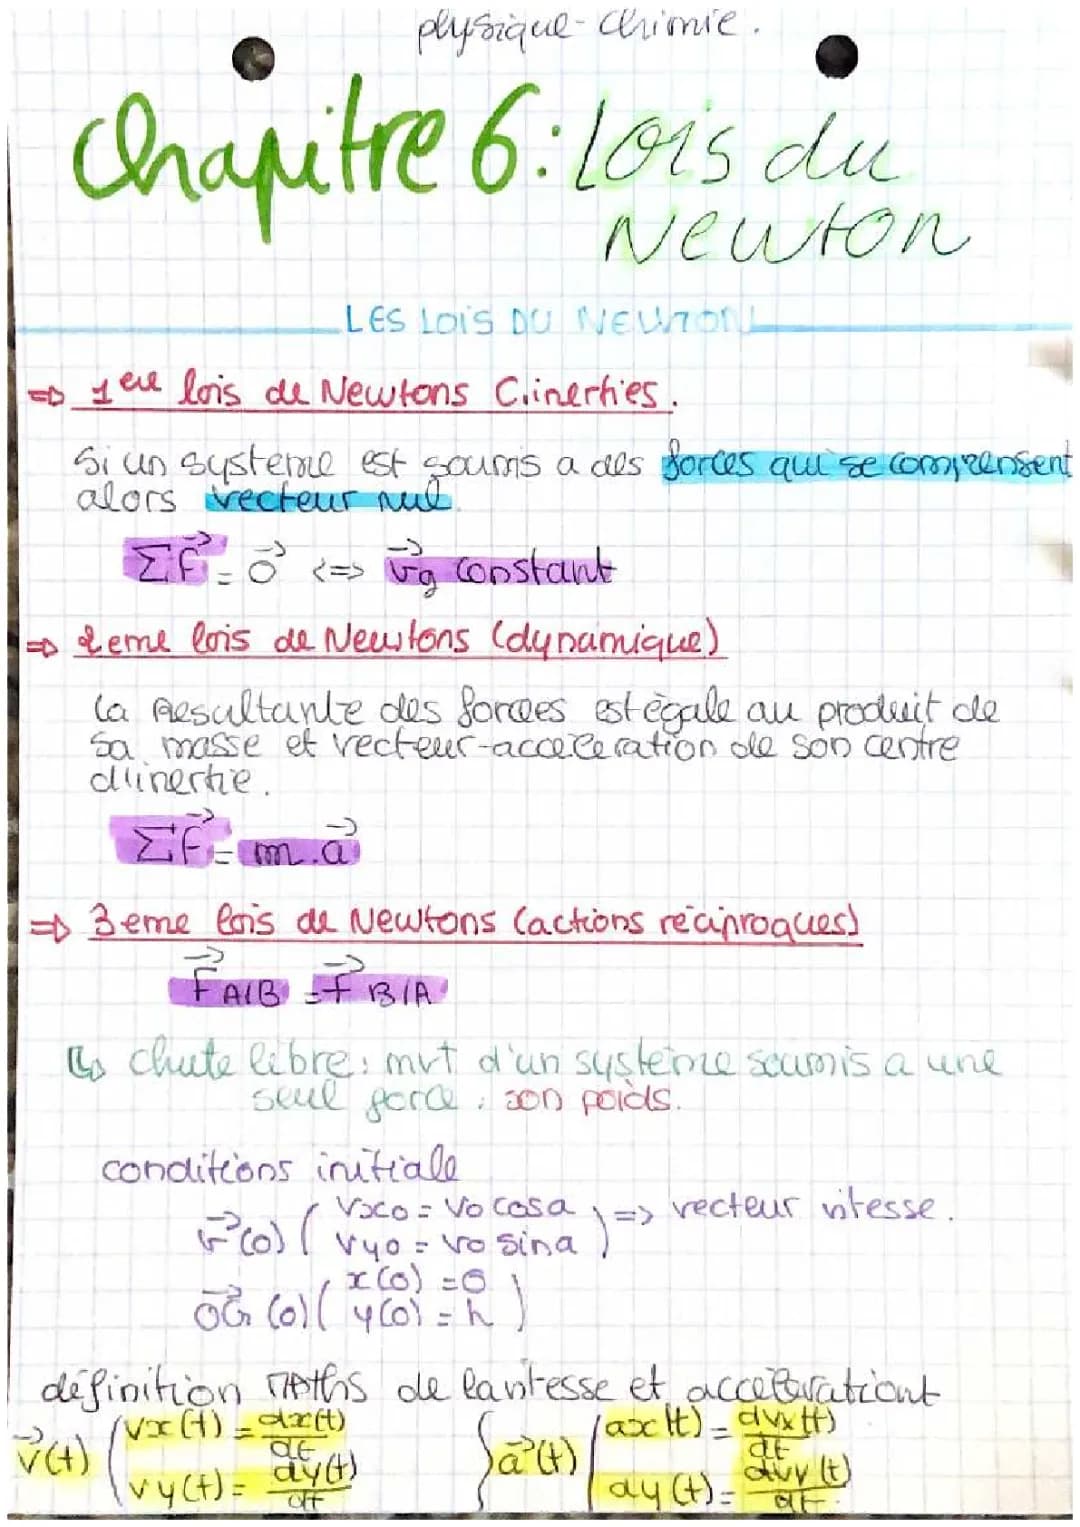 physique-chimie.
Chapitre 6: Lois du
Newton
LES LOIS DU NEWTON
⇒ 1ere lois de Newtons C.inerties.
Si un systeme est soumis a des forces qui se compensent
alors vecteur nul.
ΣF⃗ = 0⃗ <=> v⃗g constant
⇒ 2eme lois de Newtons (dynamique)
la Resultante des forces est égale au produit de
sa masse et vecteur-acceleration de son centre
d'inertie.
ΣF⃗ = m.a⃗
⇒ 3eme lois de Newtons (actions réciproques)
F⃗ A/B = F⃗ B/A
↳ chute libre: mvt d'un système soumis a une
seul force : son poids.
conditions initiale
v⃗(0) ( vx0 = v0 cosa
vy0 = v0 sina ) => vecteur vitesse.
OG⃗ (0) ( x(0) = 0
y(0) = h )
définition MAths de la vitesse et accelerationt
v⃗(t) ( vx(t) = dx(t)/dt { a⃗(t) ( ax(t) = dvx(t)/dt
vy(t) = dy(t)/dt ay(t) = dvy(t)/dt